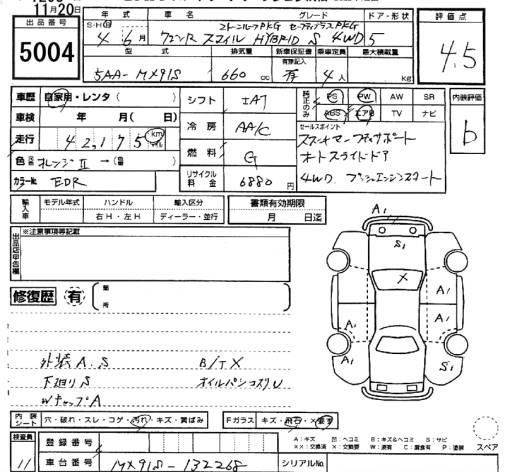 11月20日
出品番号
5004
年式 車名 グレード ドア・形状
2トーンルーフPKG セーフティプラスPKG
S・H・R 4年6月 ワゴンR スマイル HYBRID S 4WD 5
評価点
4.5
型式 排気量 新車保証書 乗車定員 最大積載量
有限記入
5AA-MX91S 660cc 有 4人 kg
車歴 自家用・レンタ( )
車検 年 月( 日)
走行 42,175 km
色 オレンジⅡ → ( )
カラーNo. EDR
シフト IAT
冷房 AA/C
燃料 G
リサイクル料金 6880円
純正のみ PS PW AW SR
ABS エアB TV ナビ
セールスポイント
スズキスマートサポート
オートスライドドア
4WD プッシュエンジンスタート
内装評価
b
輸入車 モデル年式 ハンドル 輸入区分
右H・左H ディーラー・並行
書類有効期限
月 日迄
出品店申告欄
※注意事項等記載
修復歴 有 箇所
外装A.S B/TX
下廻りS オイルパンコスリU
WキャップA
A1
S1
X
A1
A1
A1
A1
内装シート 穴・破れ・スレ・コゲ・汚れ・キズ・黄ばみ
Fガラス キズ・飛石・X・要す
検査員
11
登録番号
車台番号 MX91S-132268
シリアルNo.
A:キズ 凹:ヘコミ B:キズ&ヘコミ S:サビ
XX:交換済 X:交換要 W:波有 C:腐食有 P:塗装
スペア